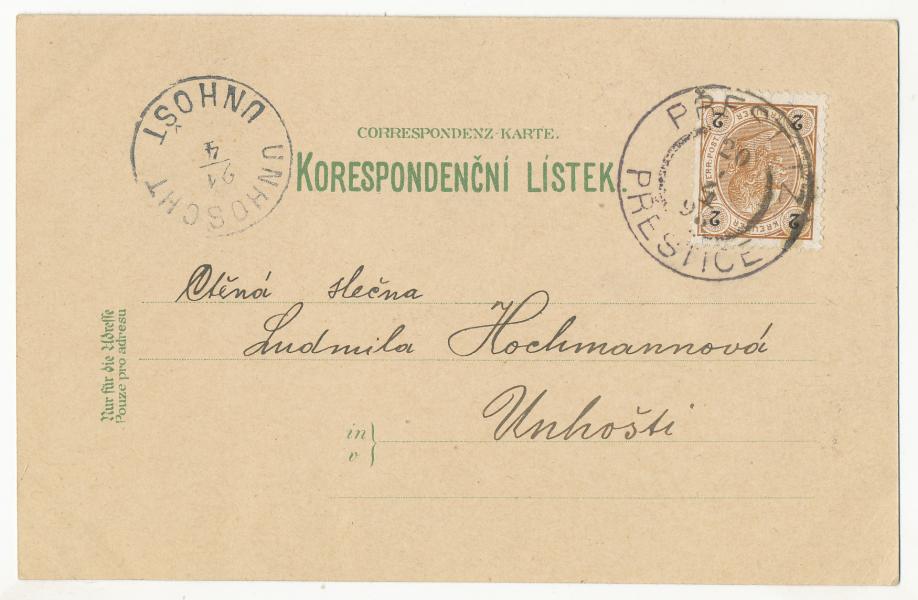 CORRESPONDENZ-KARTE.
KORESPONDENČNÍ LÍSTEK
UNHOŠT
21
4
UNHOSCHT
PŘESTITZ
20
4
PŘEŠTICE
2 2
KREUZER
2 2
Ctěná slečna
Ludmila Hochmannová
in
v
Unhošti
Nur für die Adresse
Pouze pro adresu